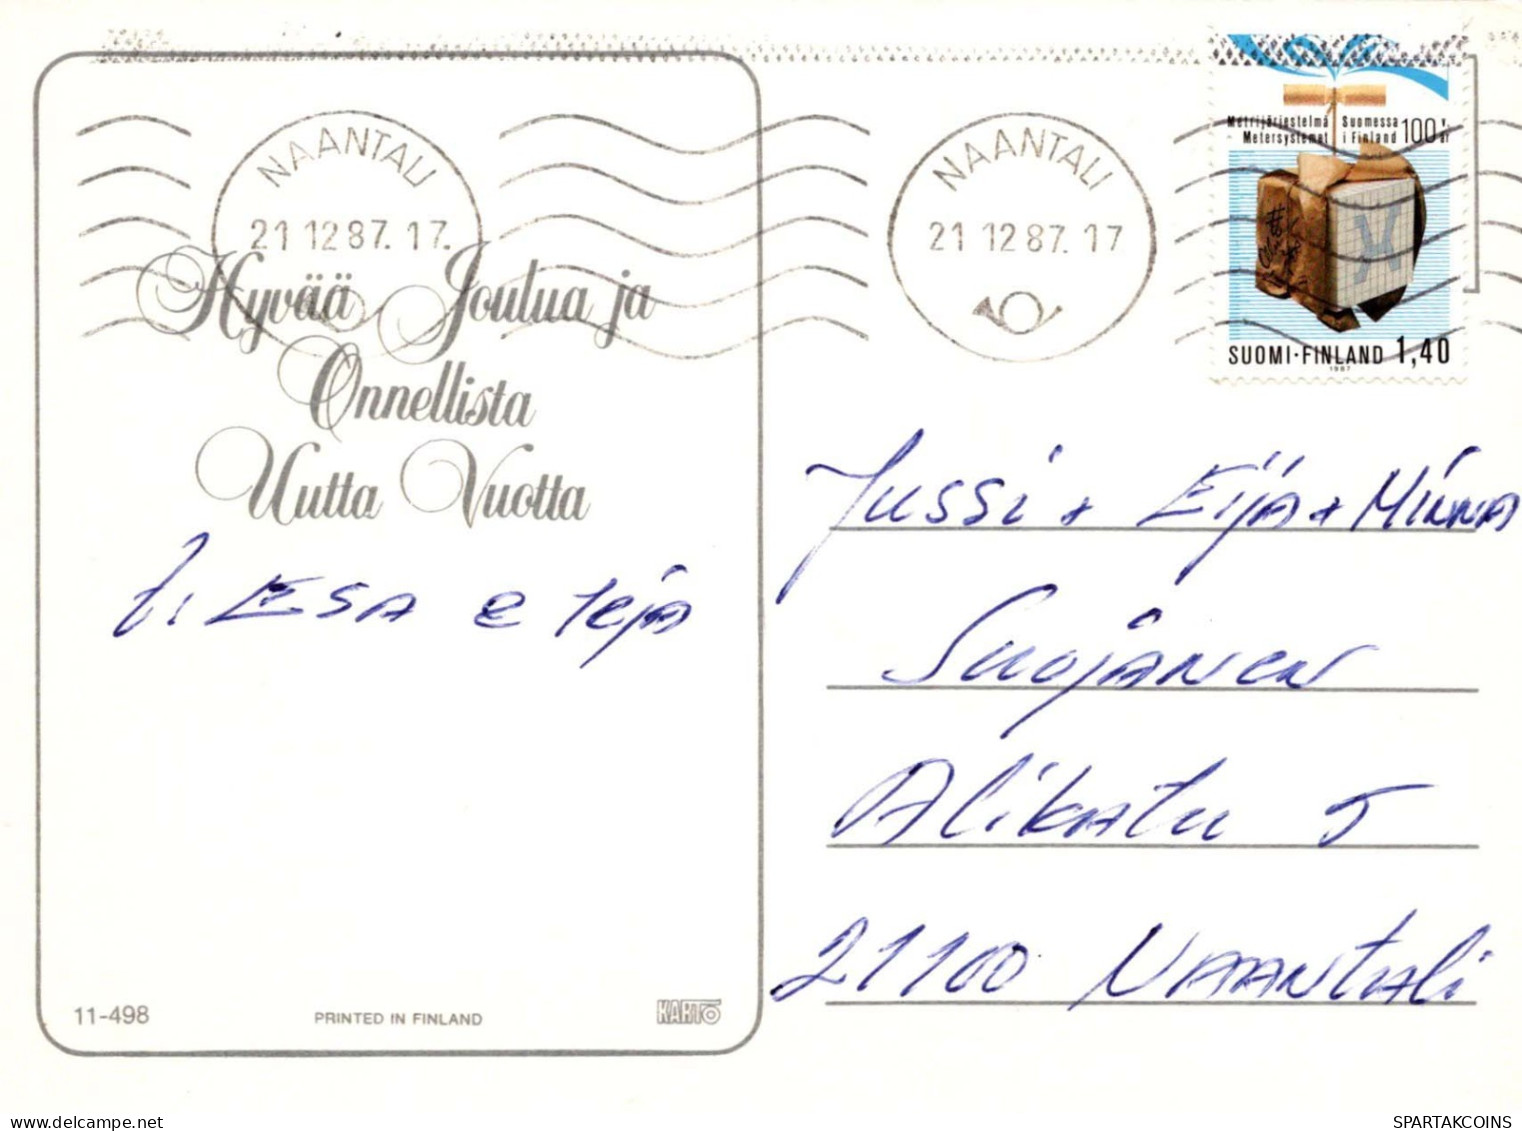 NAANTALI
21 12 87. 17.
NAANTALI
21 12 87. 17
Metrijärjestelmä Suomessa 100 v.
Metersystemet i Finland år
SUOMI-FINLAND 1,40
1987
Hyvää Joulua ja
Onnellista
Uutta Vuotta
t. Esa & Teija
Jussi + Eija + Minna
Suojanen
Alikatu 5
21100 Naantali
11-498
PRINTED IN FINLAND
KARTO
SPARTAKCOINS